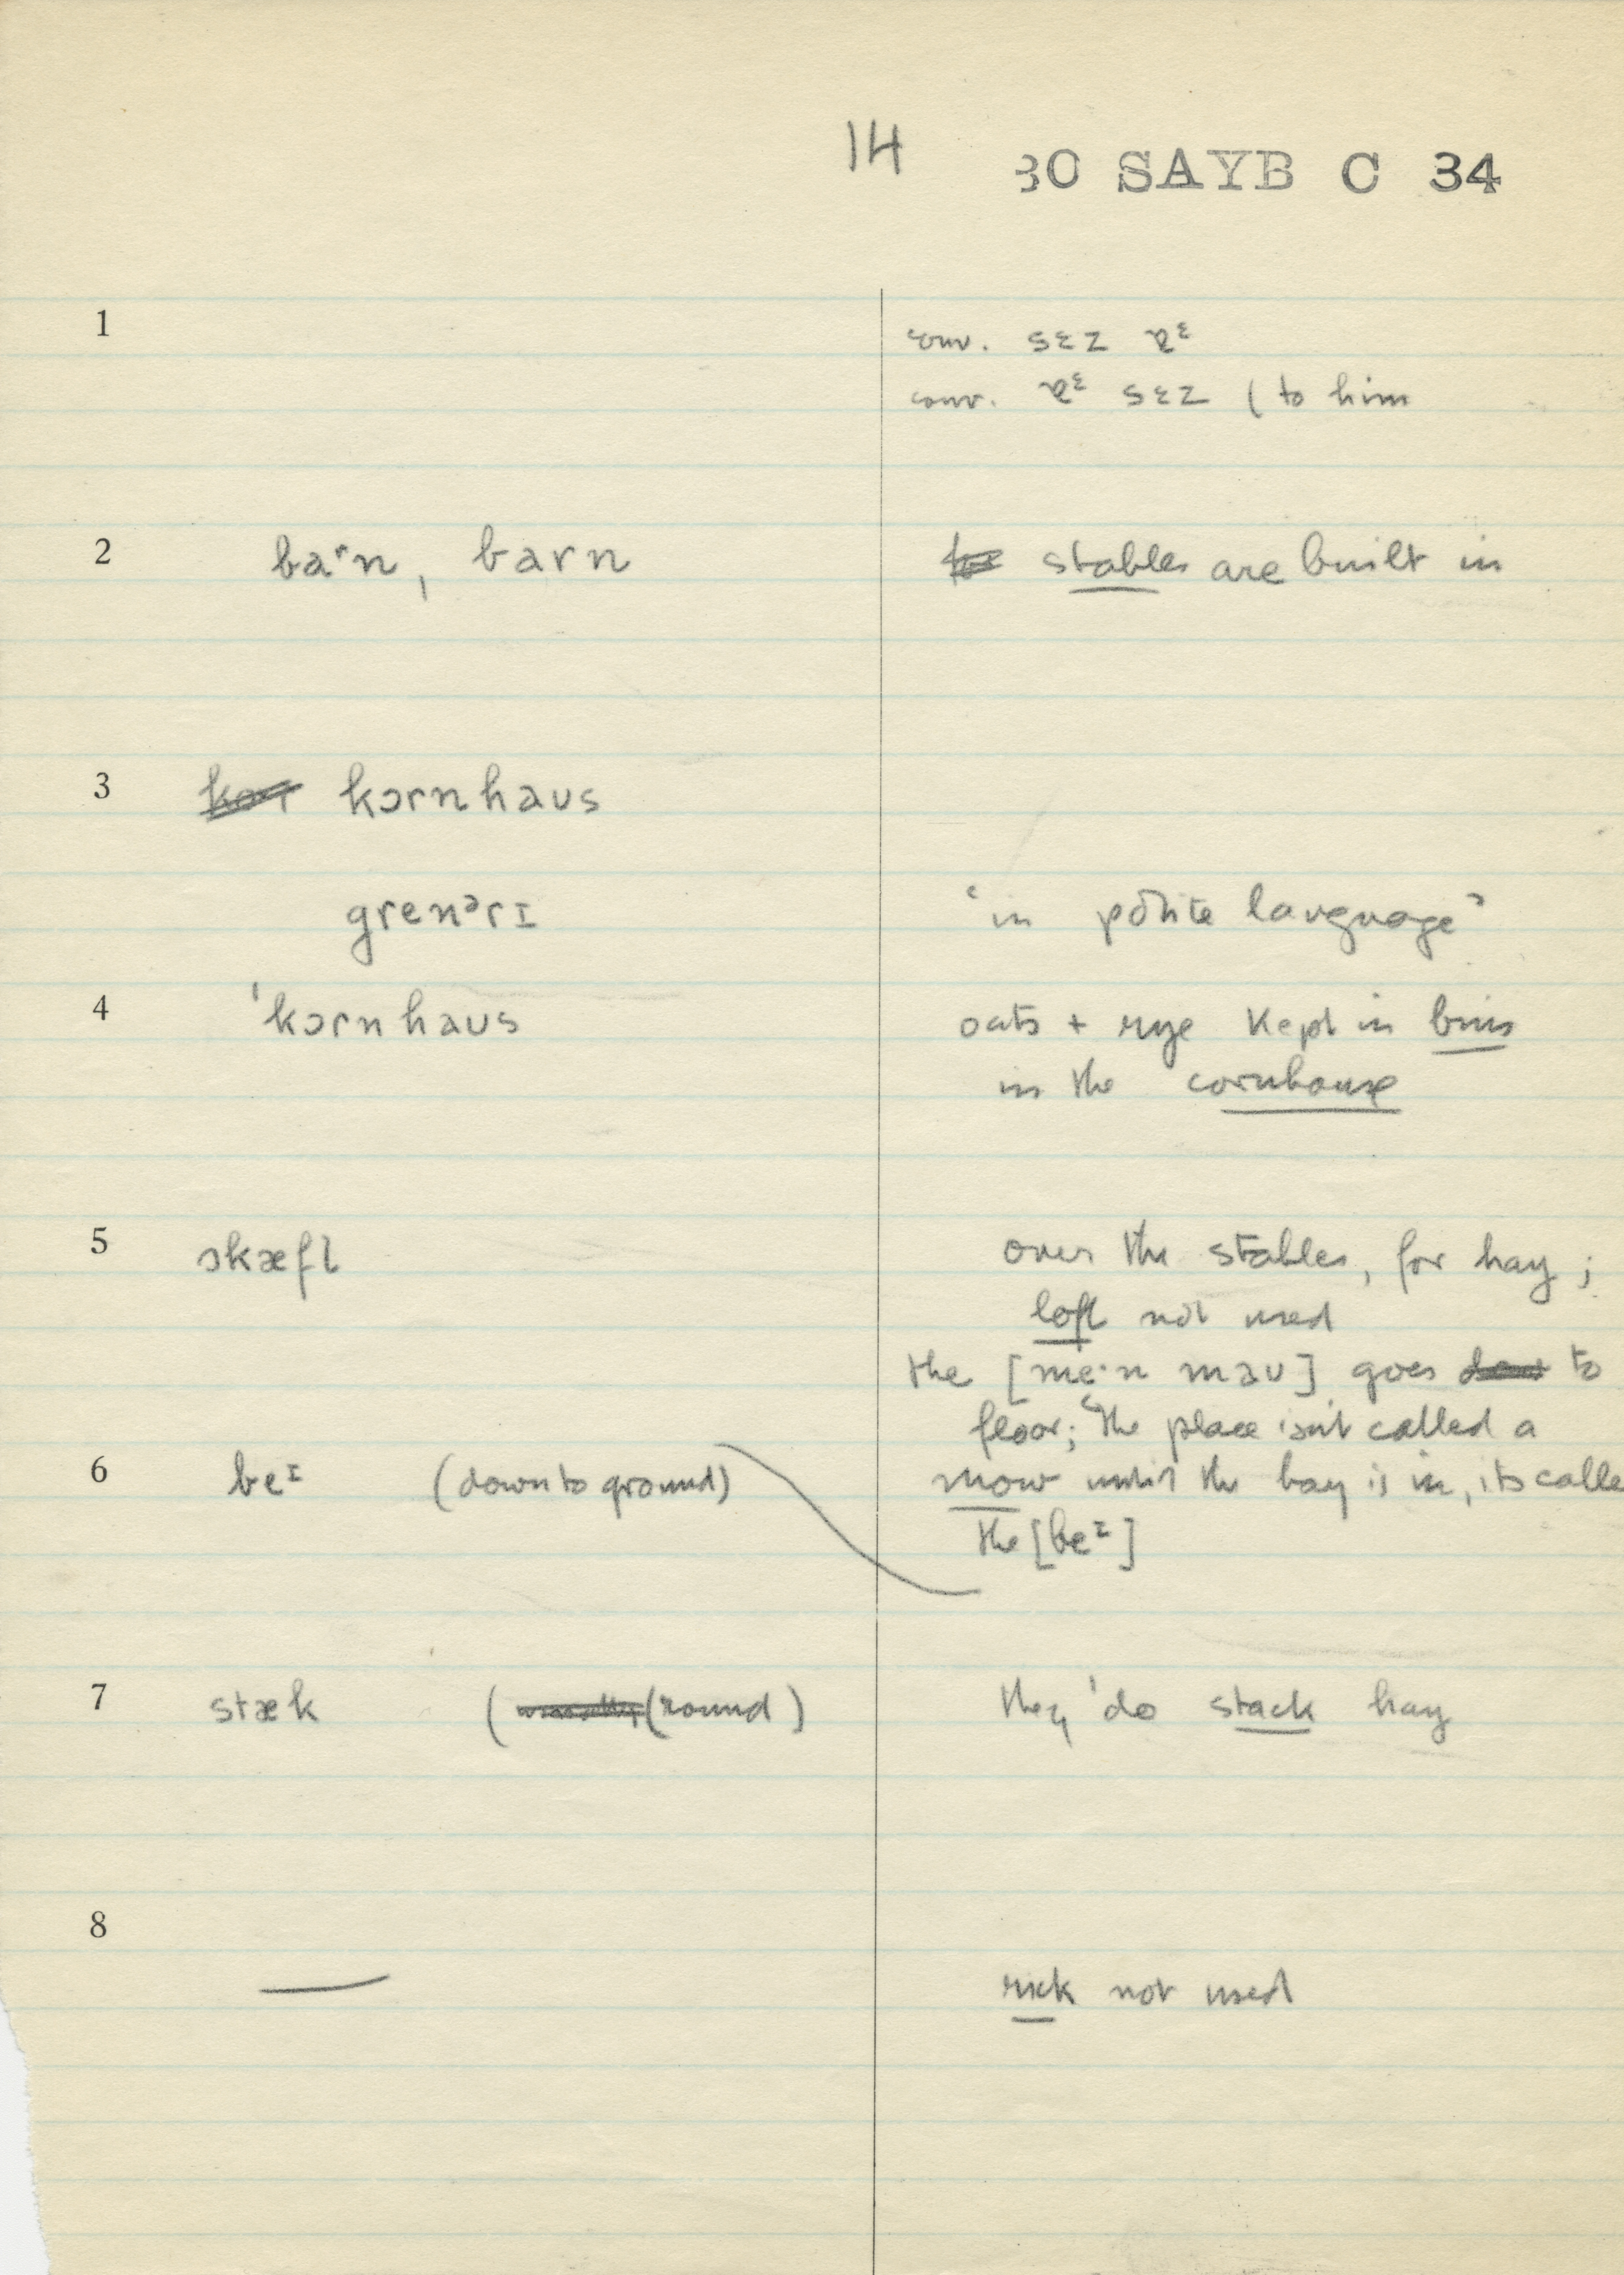 14 30 SAYB C 34
1 conv. sɛz ɐᶓ
conv. ɐᶓ sɛz ( to him
2 baʳn, barn stables are built in
3 kor kɔrnhaus
grenᵊrɪ 'in polite language'
4 ˈkɔrnhaus oats + rye kept in bins
in the cornhouse
5 skæfl over the stables, for hay;
loft not used
the [me·n maʊ] goes to
floor; "the place isn't called a
6 beᶦ (down to ground) mow until the hay is in, its calle
the [beᶦ]
7 stæk ( (round) they ˈdo stack hay
8 — rick not used